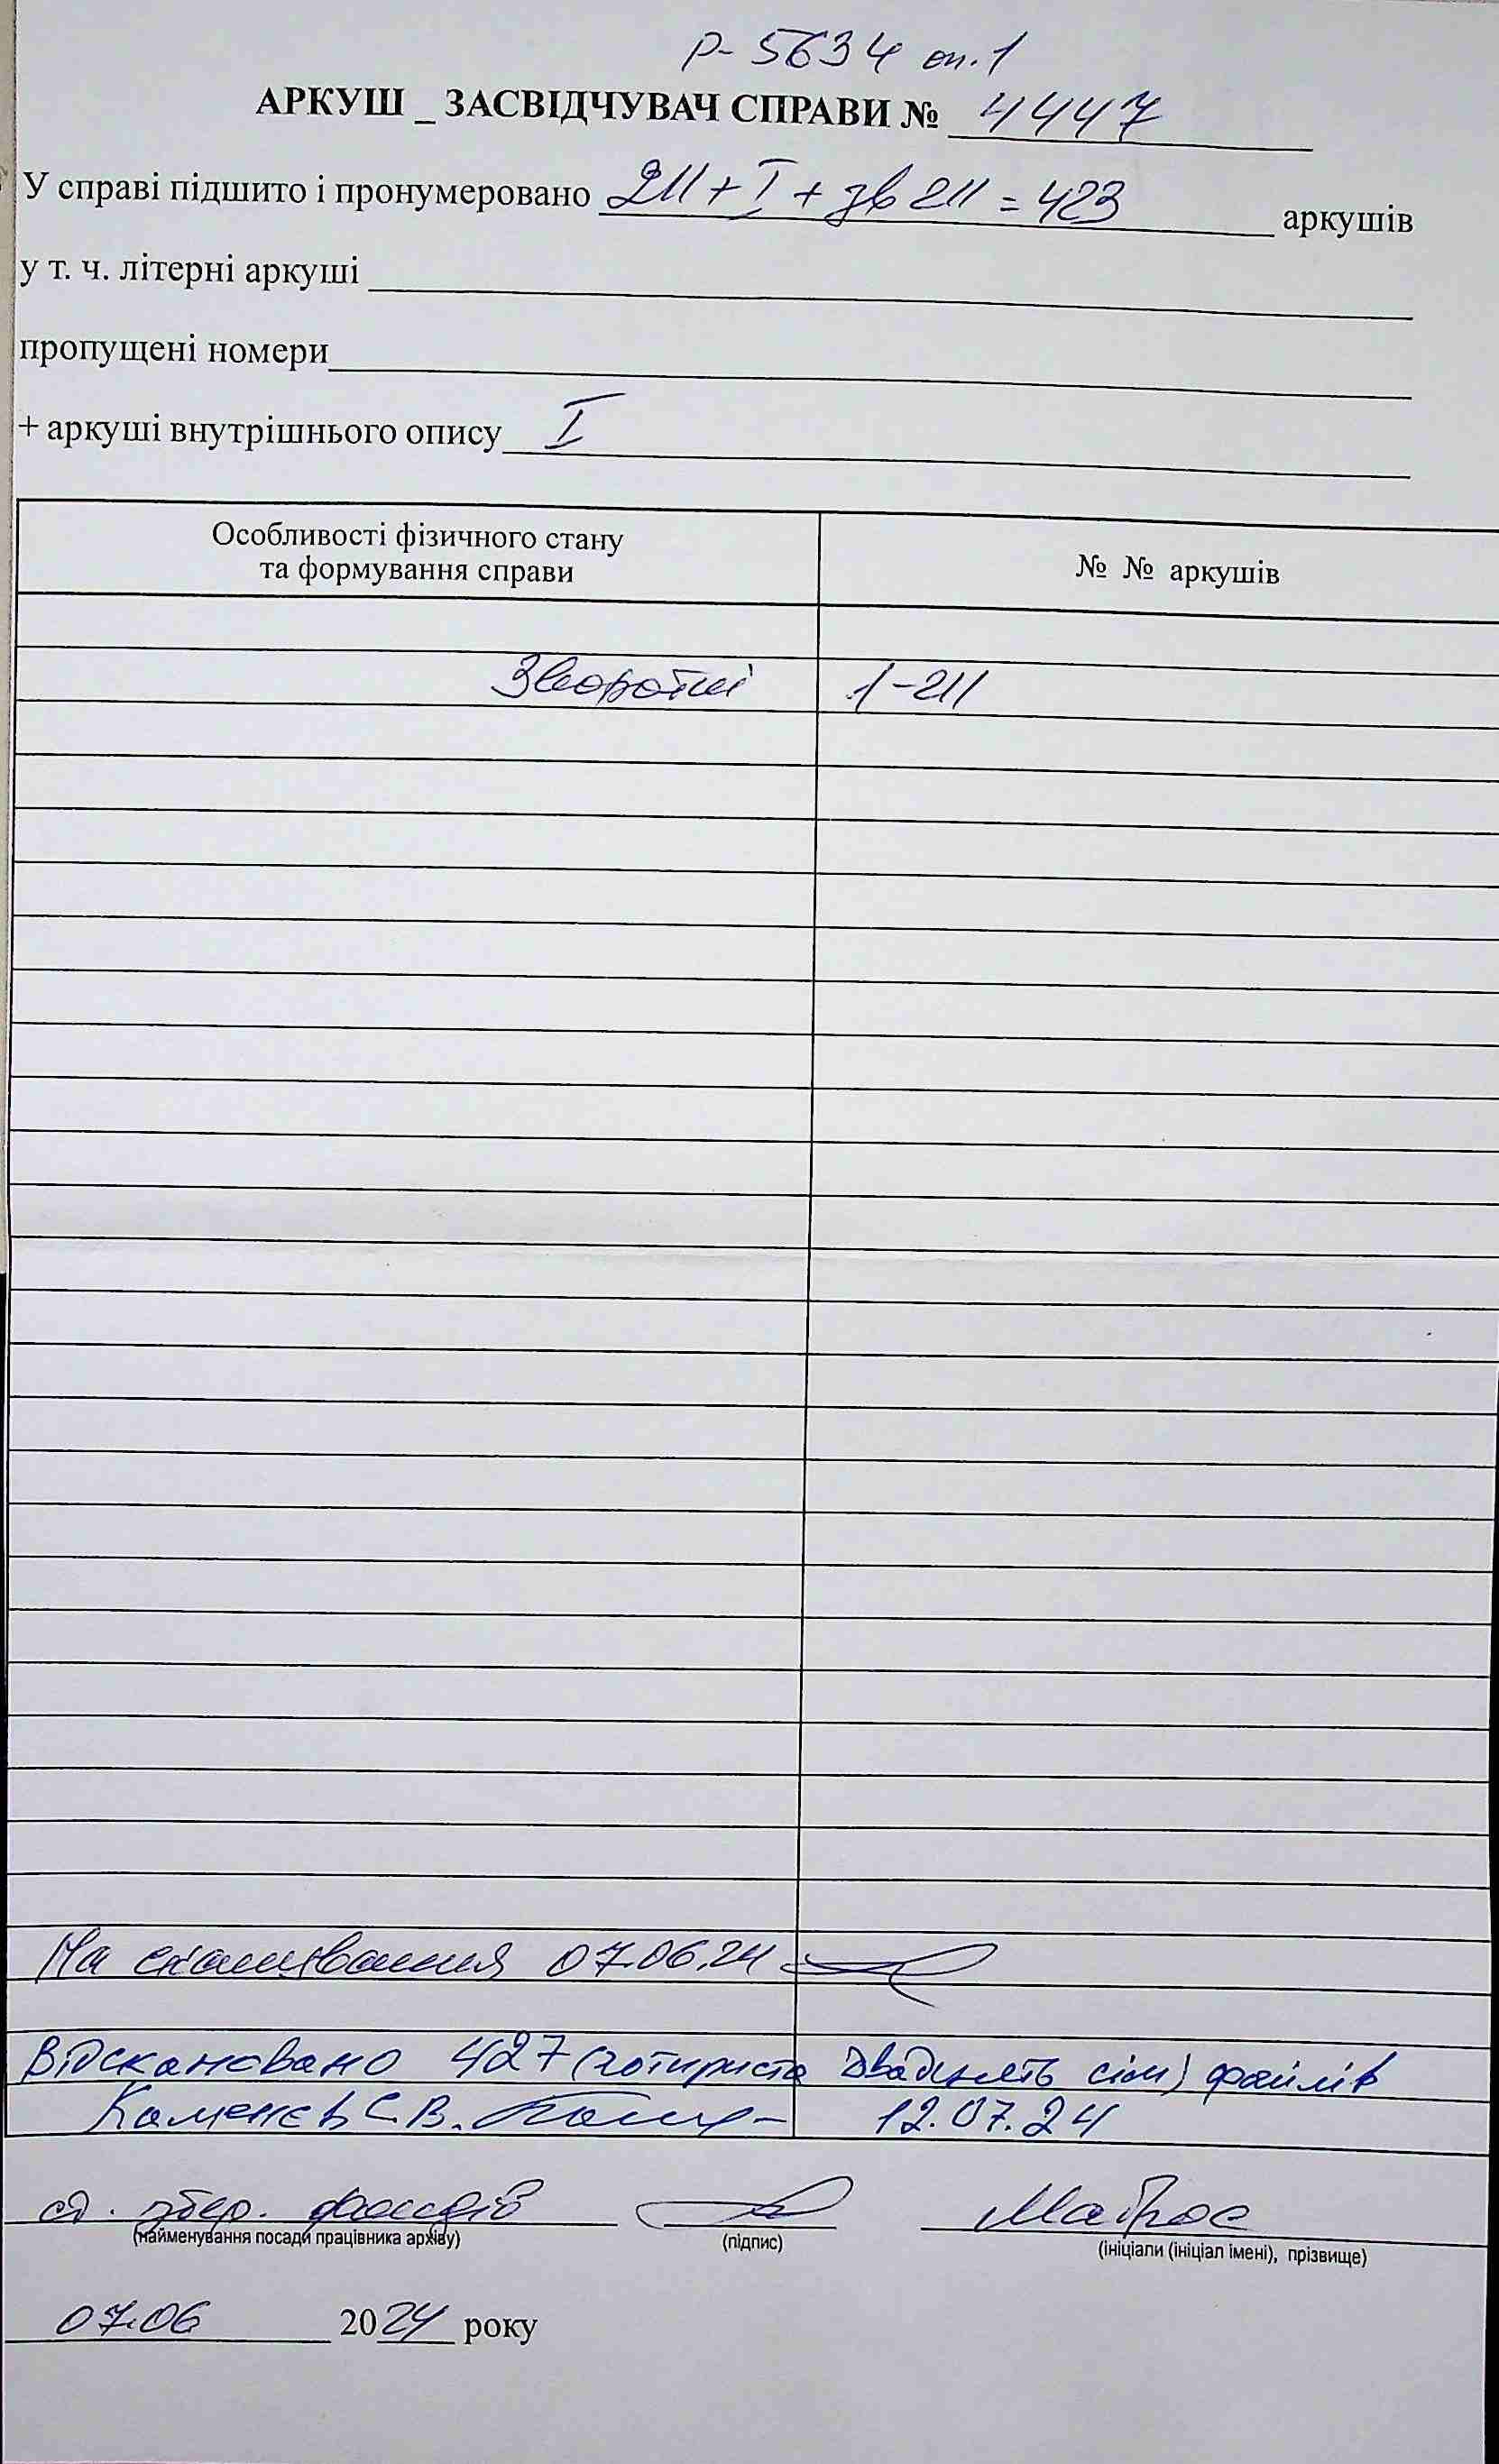 Р-5634 оп.1
АРКУШ _ ЗАСВІДЧУВАЧ СПРАВИ № 4447
У справі підшито і пронумеровано 211 + I + зв 211 = 423 аркушів
у т. ч. літерні аркуші
пропущені номери
+ аркуші внутрішнього опису I
Особливості фізичного стану
та формування справи
№ № аркушів
Зворотні 1-211
На сканування 07.06.24
Відскановано 427 (чотириста двадцять сім) файлів
Каменєв С.В. 12.07.24
ст. збер. фондів Матрос
(найменування посади працівника архіву) (підпис) (ініціали (ініціал імені), прізвище)
07.06 2024 року